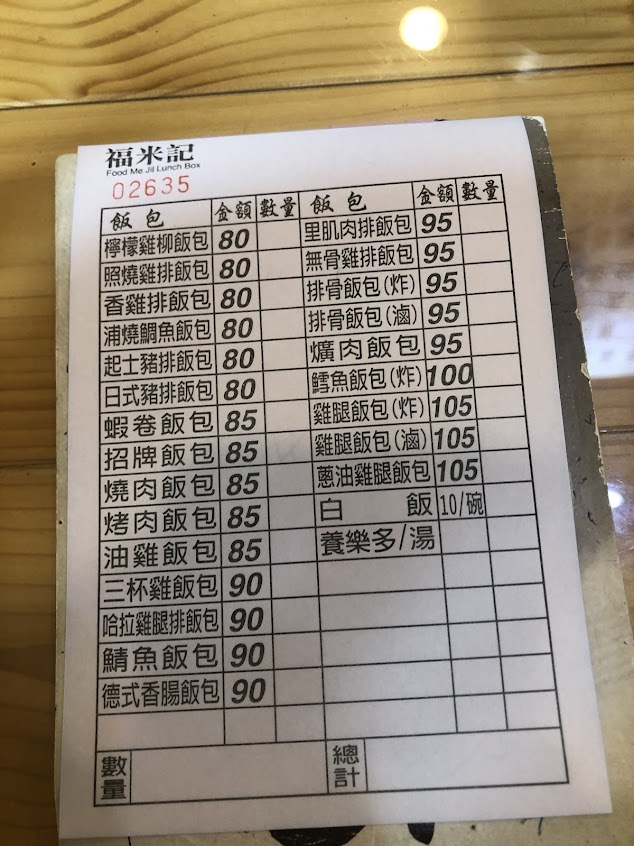 福米記
Food Me Jil Lunch Box
02635
飯包 金額 數量 飯包 金額 數量
檸檬雞柳飯包 80 里肌肉排飯包 95
照燒雞排飯包 80 無骨雞排飯包 95
香雞排飯包 80 排骨飯包(炸) 95
浦燒鯛魚飯包 80 排骨飯包(滷) 95
起士豬排飯包 80 爌肉飯包 95
日式豬排飯包 80 鱈魚飯包(炸) 100
蝦卷飯包 85 雞腿飯包(炸) 105
招牌飯包 85 雞腿飯包(滷) 105
燒肉飯包 85 蔥油雞腿飯包 105
烤肉飯包 85 白飯 10/碗
油雞飯包 85 養樂多/湯
三杯雞飯包 90
哈拉雞腿排飯包 90
鯖魚飯包 90
德式香腸飯包 90
數量 總計